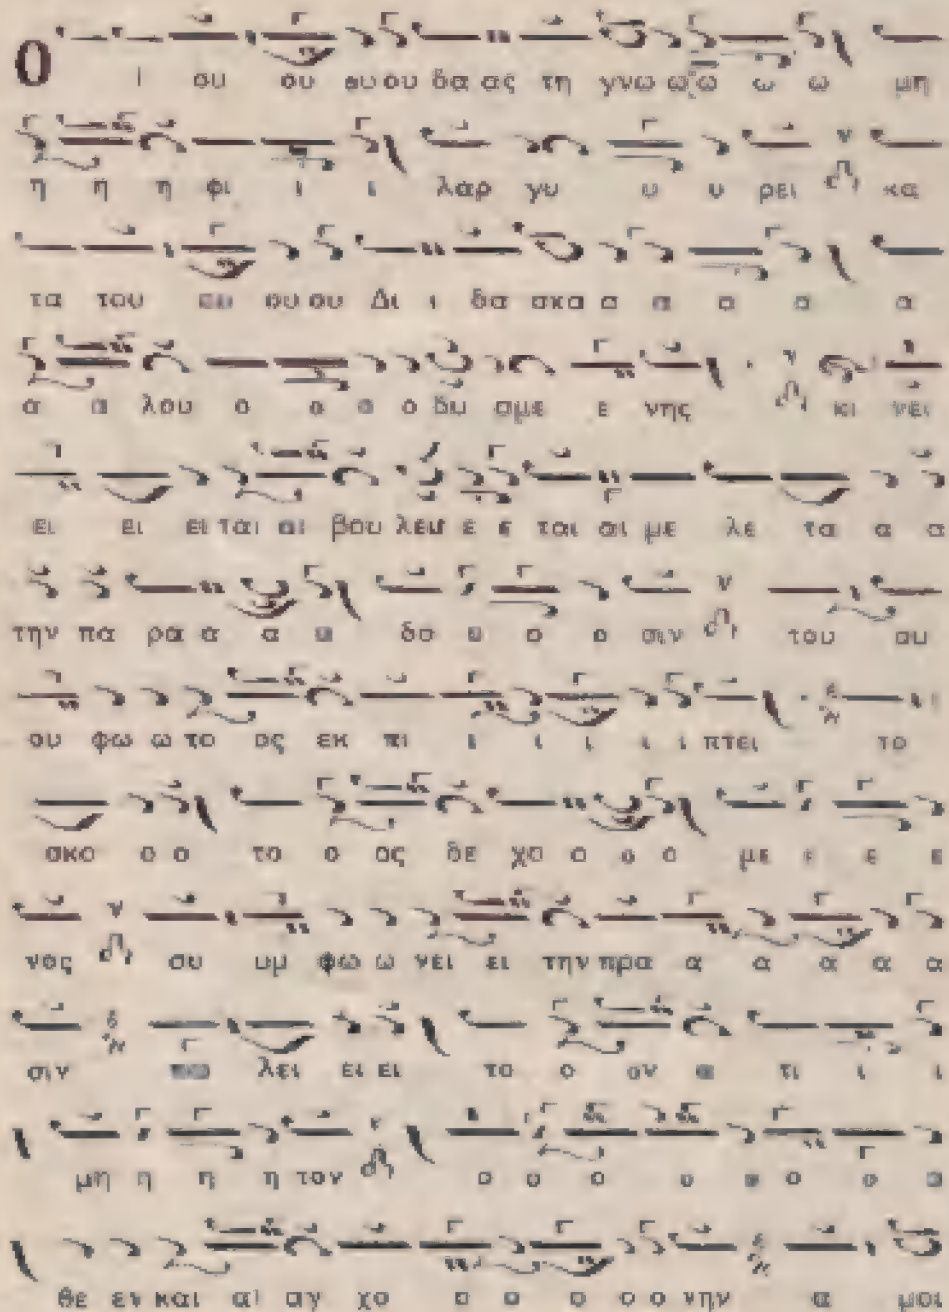 Ο ι ου ου ου ου δα ας τη γνω ω ω ω ω μη
η η η φι ι ι λαρ γυ υ υ ρει κα
τα του ου ου ου Δι ι δα σκα α α α α α
α α λου ο ο ο ο δυ σμε ε νης κι νει
ει ει ει ται αι βου λευ ε ε ται αι με λε τα α α
την πα ρα α α α δο ο ο ο σιν του ου
ου φω ω το ος εκ πι ι ι ι ι ι πτει το
σκο ο ο το ο ος δε χο ο ο ο με ε ε ε
νος συ υμ φω ω νει ει την πρα α α α α α
σιν πω λει ει ει το ο ον α τι ι ι
μη η η η τον ο ο ο ο ο ο ο ο
θε εν και αι αγ χο ο ο ο ο ο νην α μοι